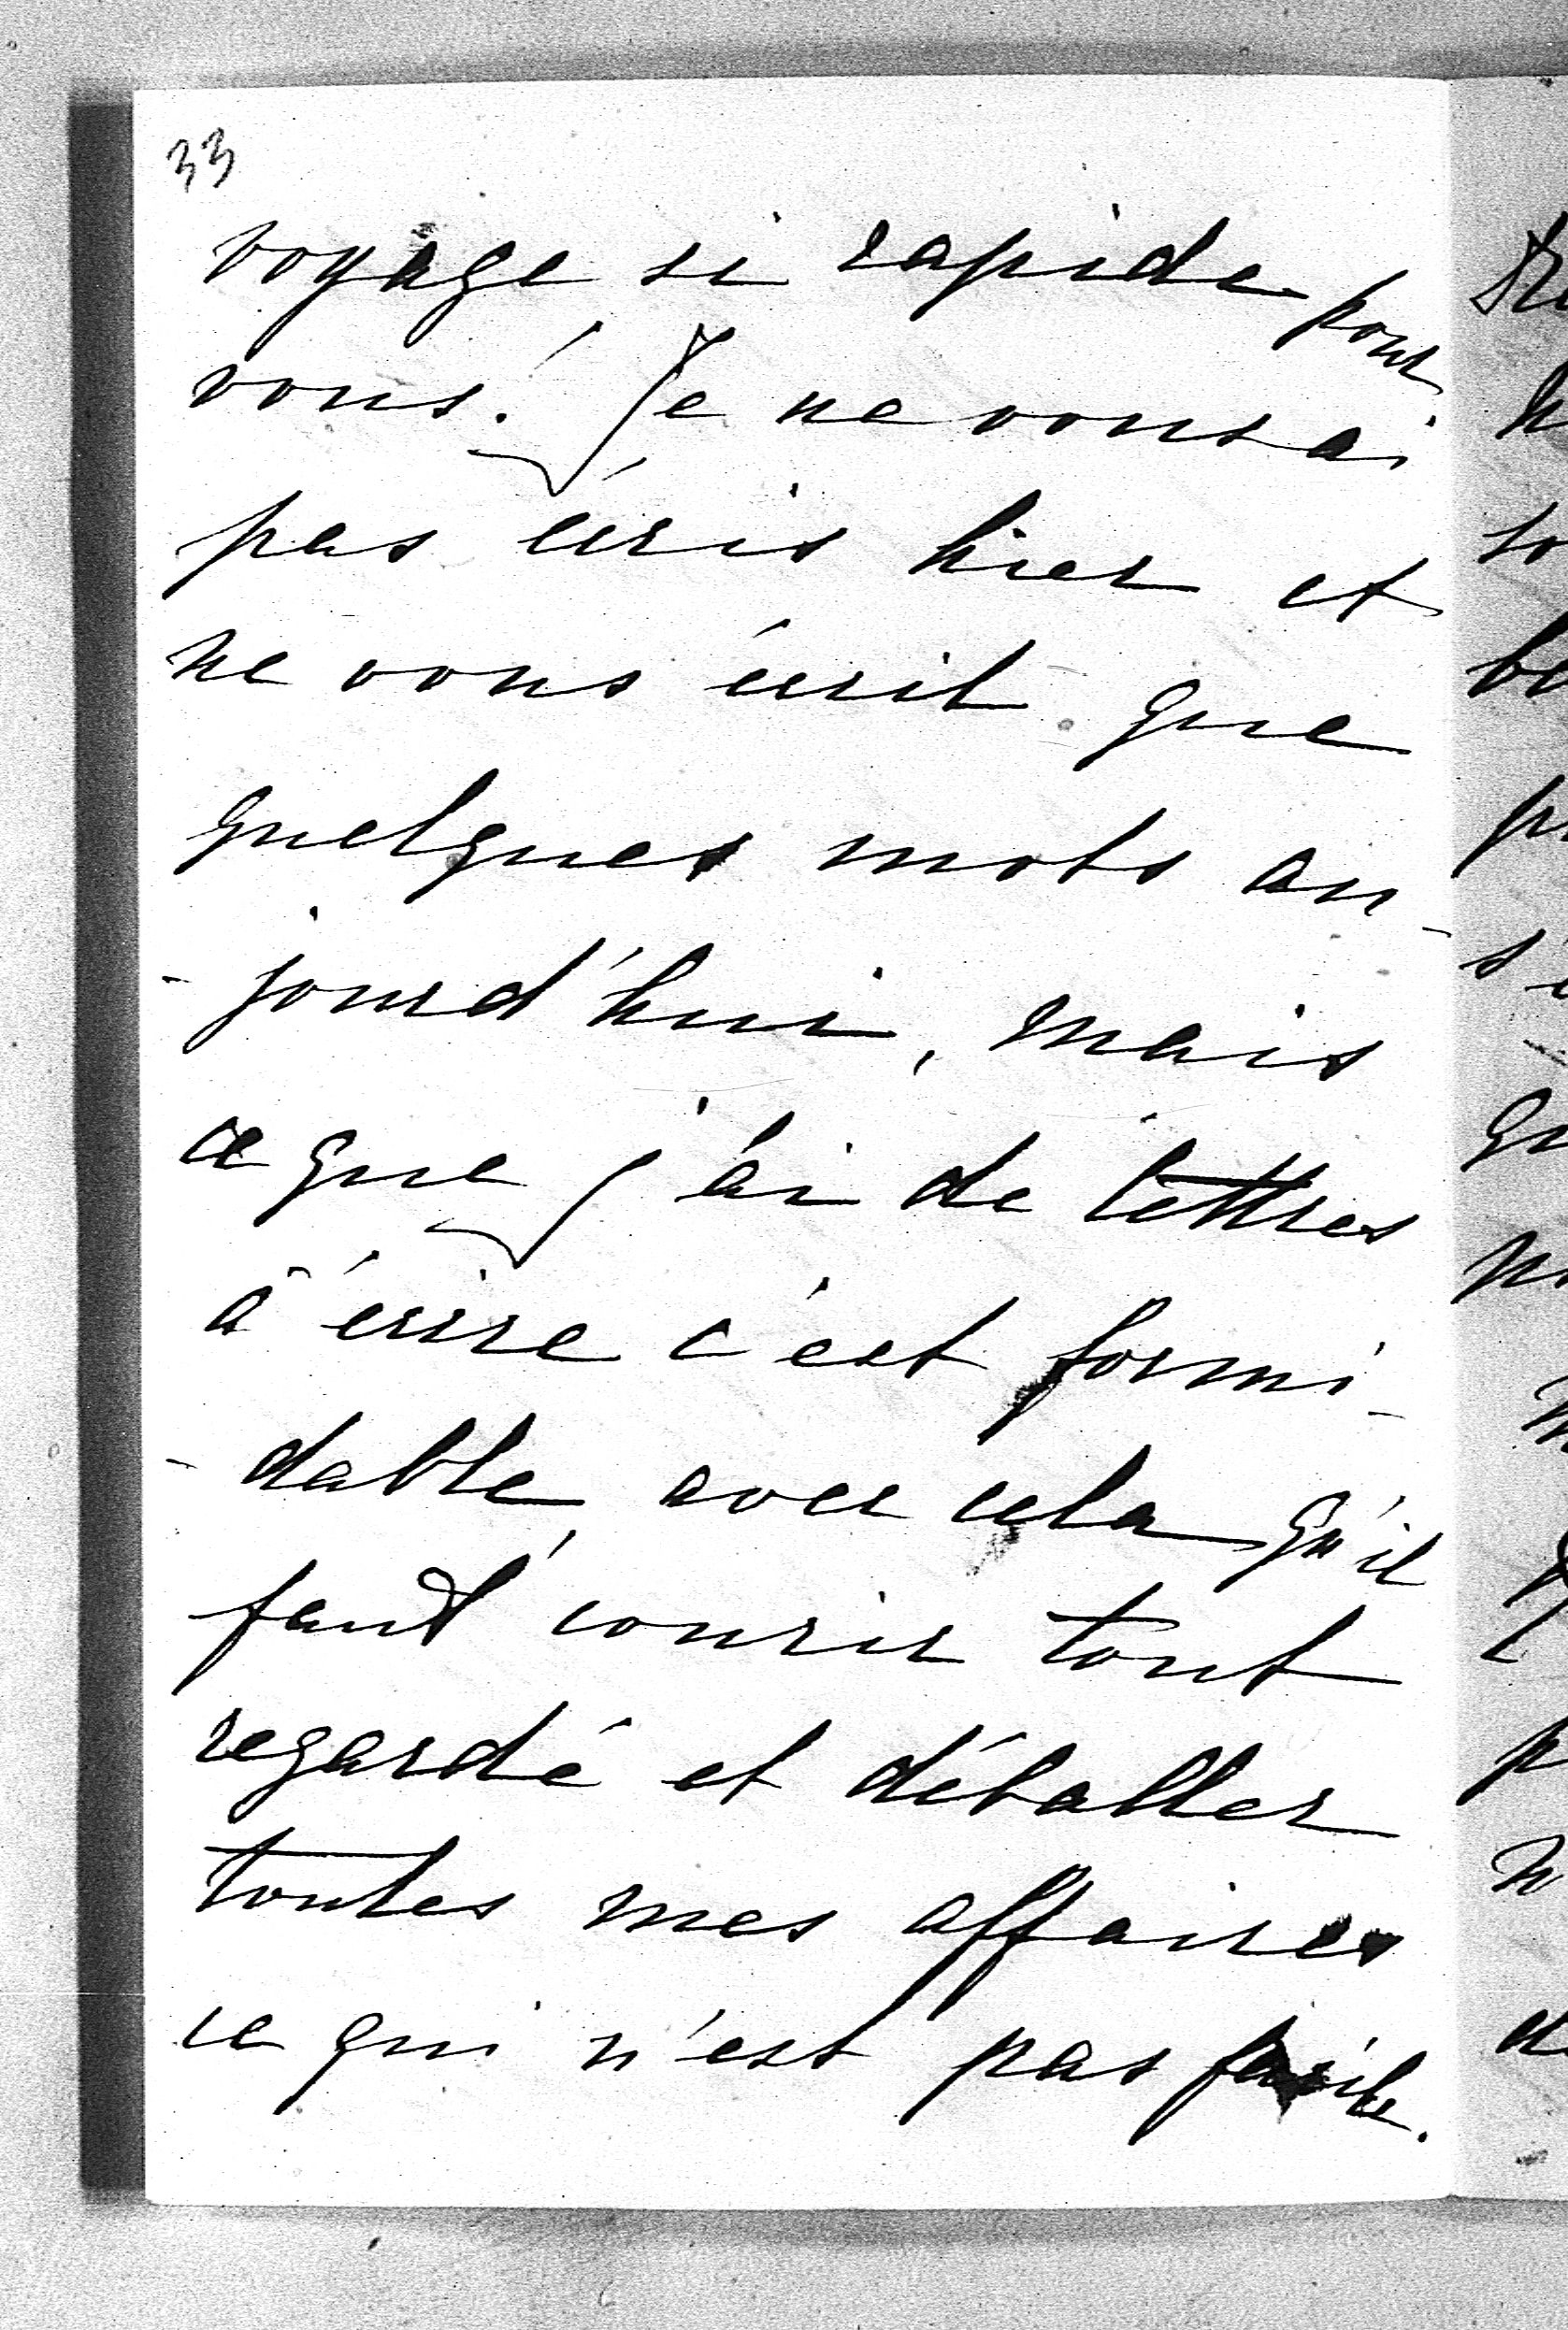 33
voyage si rapide pour
vous. Je ne vous ai
pas écris hier et
ne vous écrit que
quelques mots au-
-jourd'hui, mais
ce que j'ai de lettres
à écrire c'est formi-
-dable, avec cela qu'il
faut courir tout
regardé et déballer
toutes mes affaires
ce qui n'est pas facile.